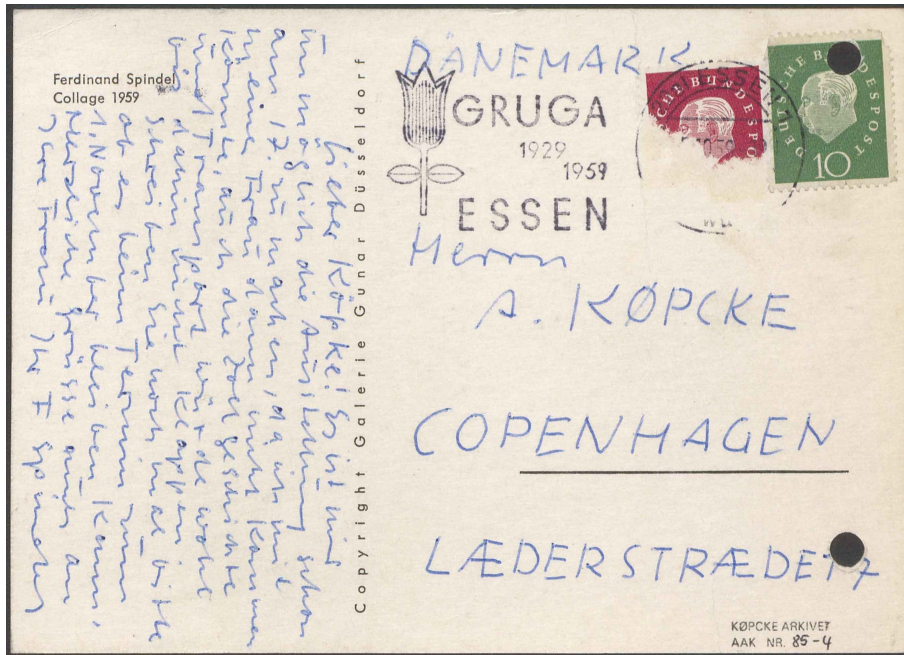 Ferdinand Spindel
Collage 1959
Lieber Köpke! Es ist mir
unmöglich die Ausstellung schon
am 17. zu machen, da ich mit
meiner Frau dann nicht kommen
könnte, auch die Zollgeschichte
und Transport würde wohl
bis dahin nicht klappen
Schreiben Sie noch mal bitte
ob es beim Termin zum
1. November bleiben kann,
Herzliche Grüsse auch an
Ihre Frau Ihr F Spindel
Copyright Galerie Gunar Düsseldorf
DÄNEMARK
GRUGA
1929
1959
ESSEN
DEUTSCHE BUNDESPOST
10
Herrn
A. KØPCKE
COPENHAGEN
LÆDERSTRÆDE
KØPCKE ARKIVET
AAK NR. 85-4